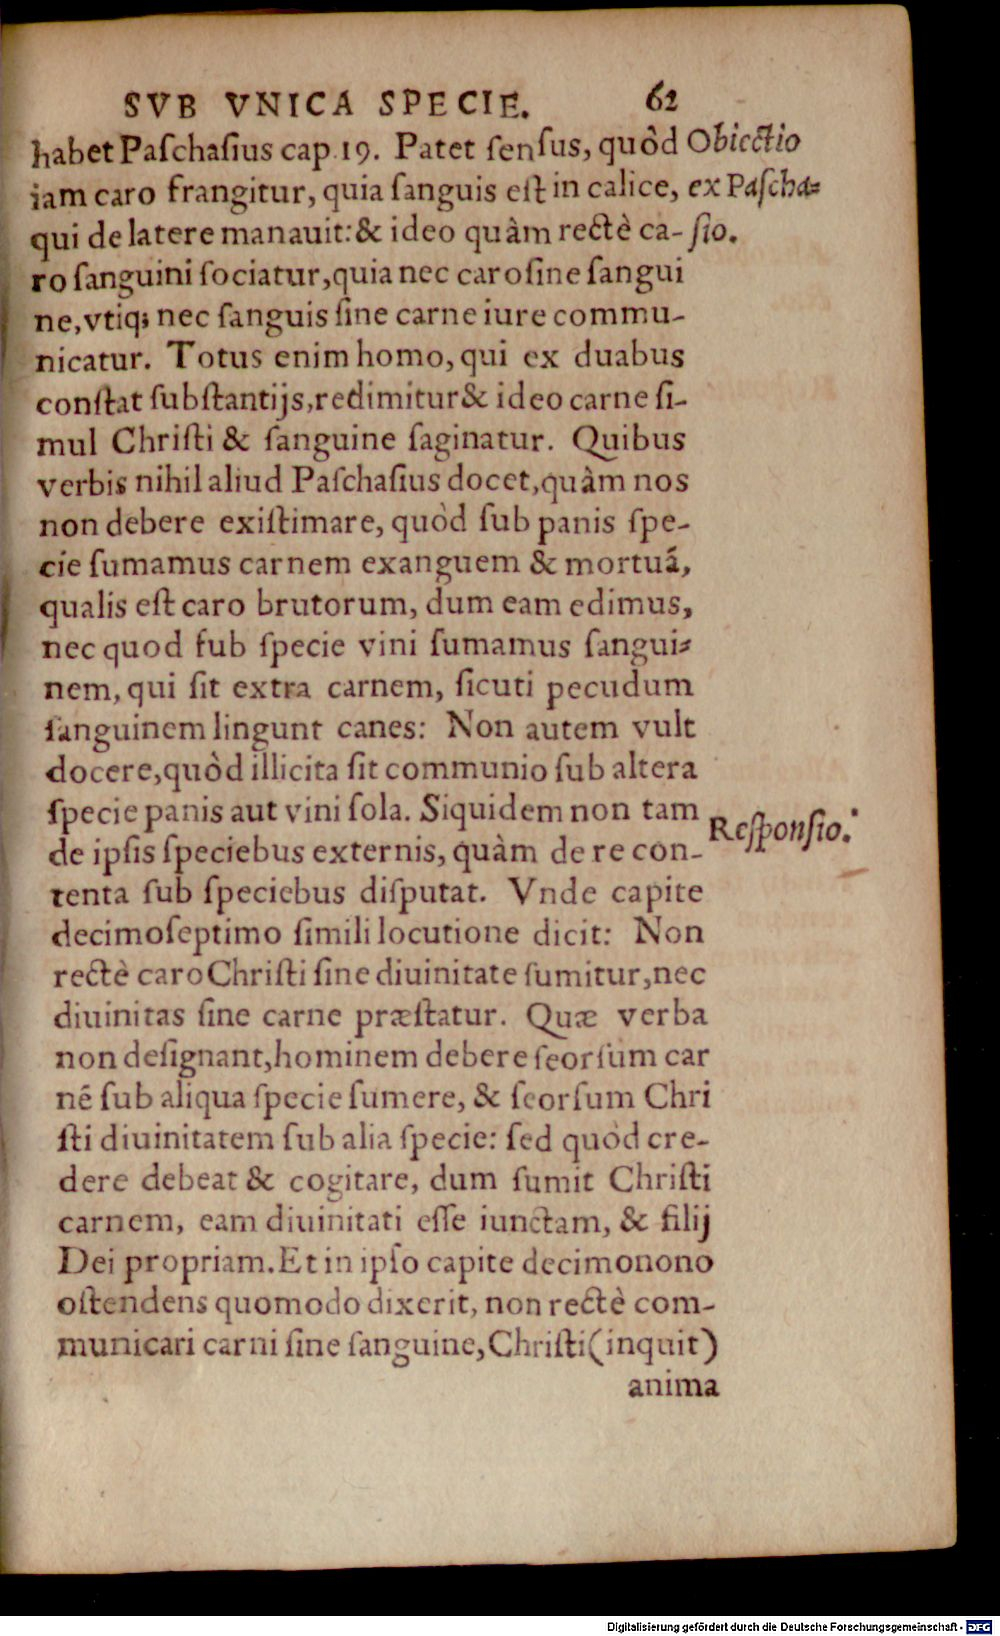 SVB VNICA SPECIE. 62
habet Paſchaſius cap. 19. Patet ſenſus, quòd
Obiectio
iam caro frangitur, quia ſanguis eſt in calice,
ex Paſcha=
qui de latere manauit: & ideo quàm rectè ca-
ſio.
ro ſanguini ſociatur, quia nec caro ſine ſangui
ne, vtiq; nec ſanguis ſine carne iure commu-
nicatur. Totus enim homo, qui ex duabus
conſtat ſubſtantijs, redimitur & ideo carne ſi-
mul Chriſti & ſanguine ſaginatur. Quibus
verbis nihil aliud Paſchaſius docet, quàm nos
non debere exiſtimare, quòd ſub panis ſpe-
cie ſumamus carnem exanguem & mortuã,
qualis eſt caro brutorum, dum eam edimus,
nec quod ſub ſpecie vini ſumamus ſangui=
nem, qui ſit extra carnem, ſicuti pecudum
ſanguinem lingunt canes: Non autem vult
docere, quòd illicita ſit communio ſub altera
ſpecie panis aut vini ſola. Siquidem non tam
Reſponſio.
de ipſis ſpeciebus externis, quàm de re con-
tenta ſub ſpeciebus diſputat. Vnde capite
decimoſeptimo ſimili locutione dicit: Non
rectè caro Chriſti ſine diuinitate ſumitur, nec
diuinitas ſine carne præſtatur. Quæ verba
non deſignant, hominem debere ſeorſum car
nẽ ſub aliqua ſpecie ſumere, & ſeorſum Chri
ſti diuinitatem ſub alia ſpecie: ſed quòd cre-
dere debeat & cogitare, dum ſumit Chriſti
carnem, eam diuinitati eſſe iunctam, & filij
Dei propriam. Et in ipſo capite decimonono
oſtendens quomodo dixerit, non rectè com-
municari carni ſine ſanguine, Chriſti (inquit)
anima
Digitalisierung gefördert durch die Deutsche Forschungsgemeinschaft - DFG